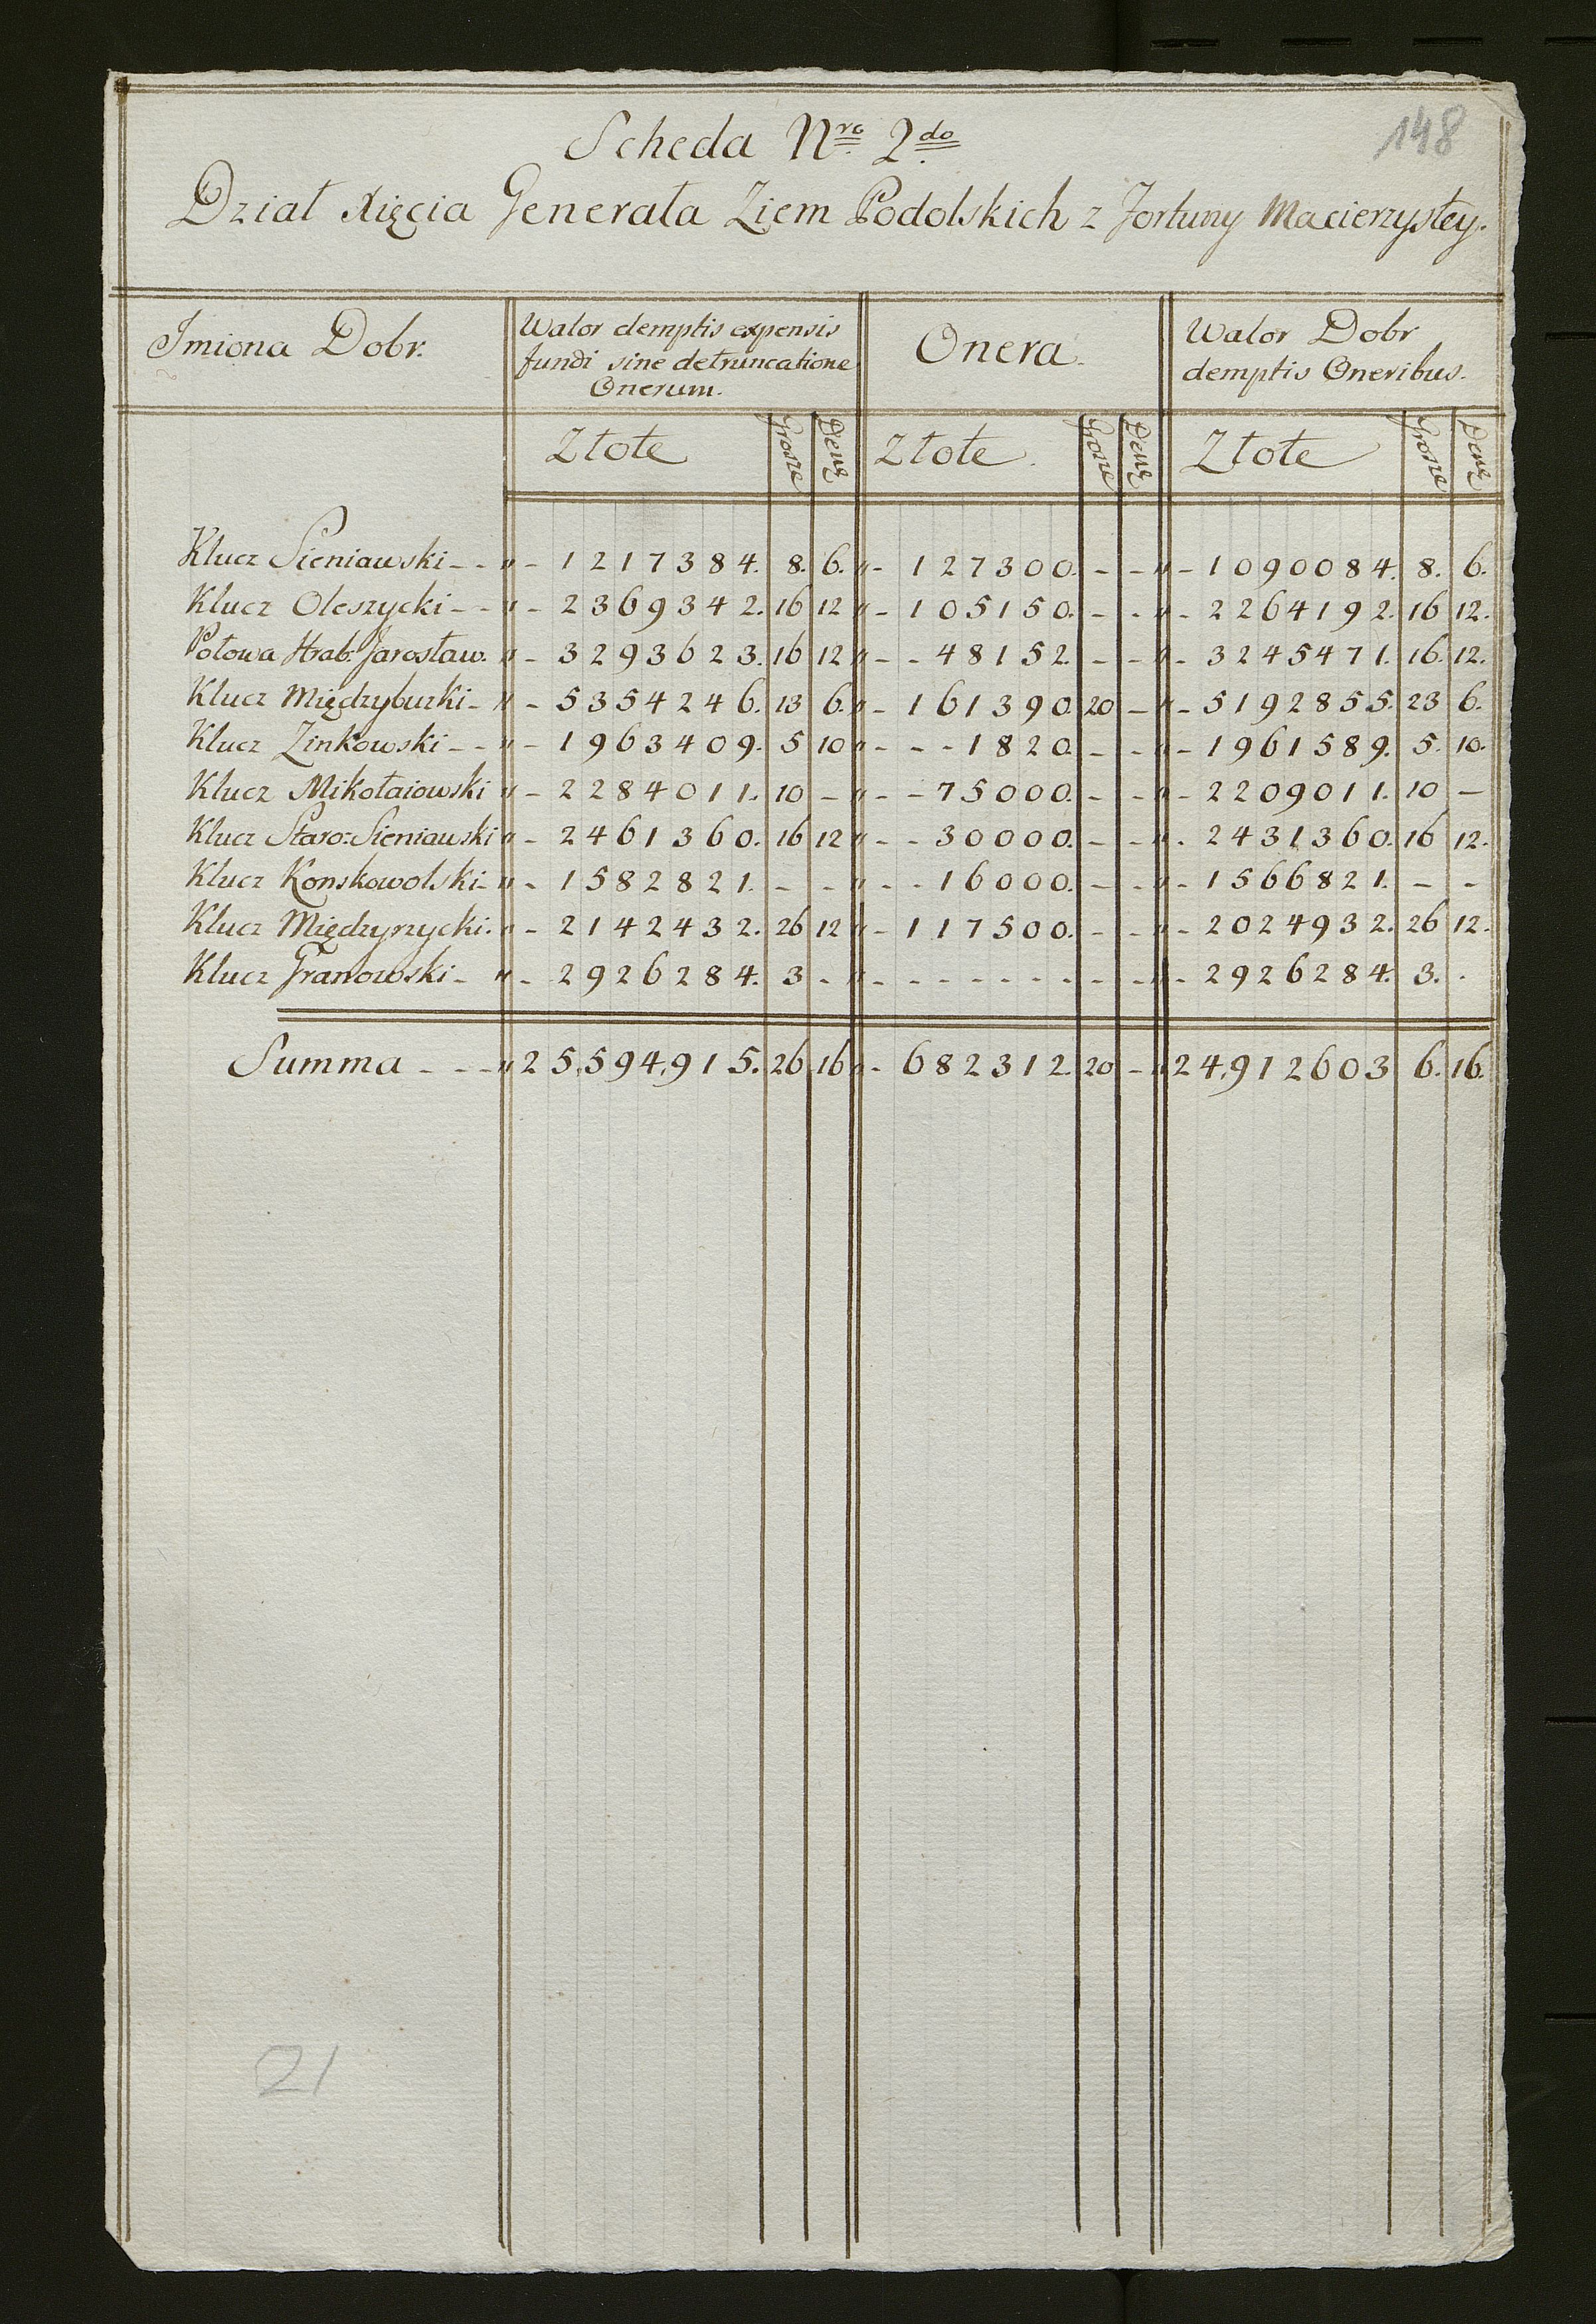 148
Scheda Nro 2do
Dział Xięcia Generała Ziem Podolskich z Fortuny Macierzystey.
Imiona Dobr. Walor demptis expensis fundi sine detruncatione Onerum. Onera. Walor Dobr demptis Oneribus.
Złote Grosze Den Złote Grosze Den Złote Grosze Den
Klucz Sieniawski - - " - 1217384. 8. 6. " - 127300. - - " - 1090084. 8. 6.
Klucz Oleszycki - - " - 2369342. 16 12 " - 105150. - - " - 2264192. 16 12.
Połowa Hrab: Jarosław. " - 3293623. 16 12 " - - 48152. - - " - 3245471. 16. 12.
Klucz Międzyburki - " - 5354246. 13 6. " - 161390. 20 - " - 5192855. 23 6.
Klucz Zinkowski - - " - 1963409. 5 10 " - - - 1820. - - " - 1961589. 5. 10.
Klucz Mikołaiowski " - 2284011. 10 - " - - 75000. - - " - 2209011. 10 -
Klucz Staro: Sieniawski " - 2461360. 16 12 " - - 30000. - - " - 2431360. 16 12.
Klucz Konskowolski - " - 1582821. - - " - - 16000. - - " - 1566821. - -
Klucz Międzyrzycki. " - 2142432. 26 12 " - 117500. - - " - 2024932. 26 12.
Klucz Granowski - " - 2926284. 3 - " - - - - - - - - - " - 2926284. 3. -
Summa - - - " 25,594,915. 26 16 " - 682312. 20 - " 24,912603 6. 16.
21